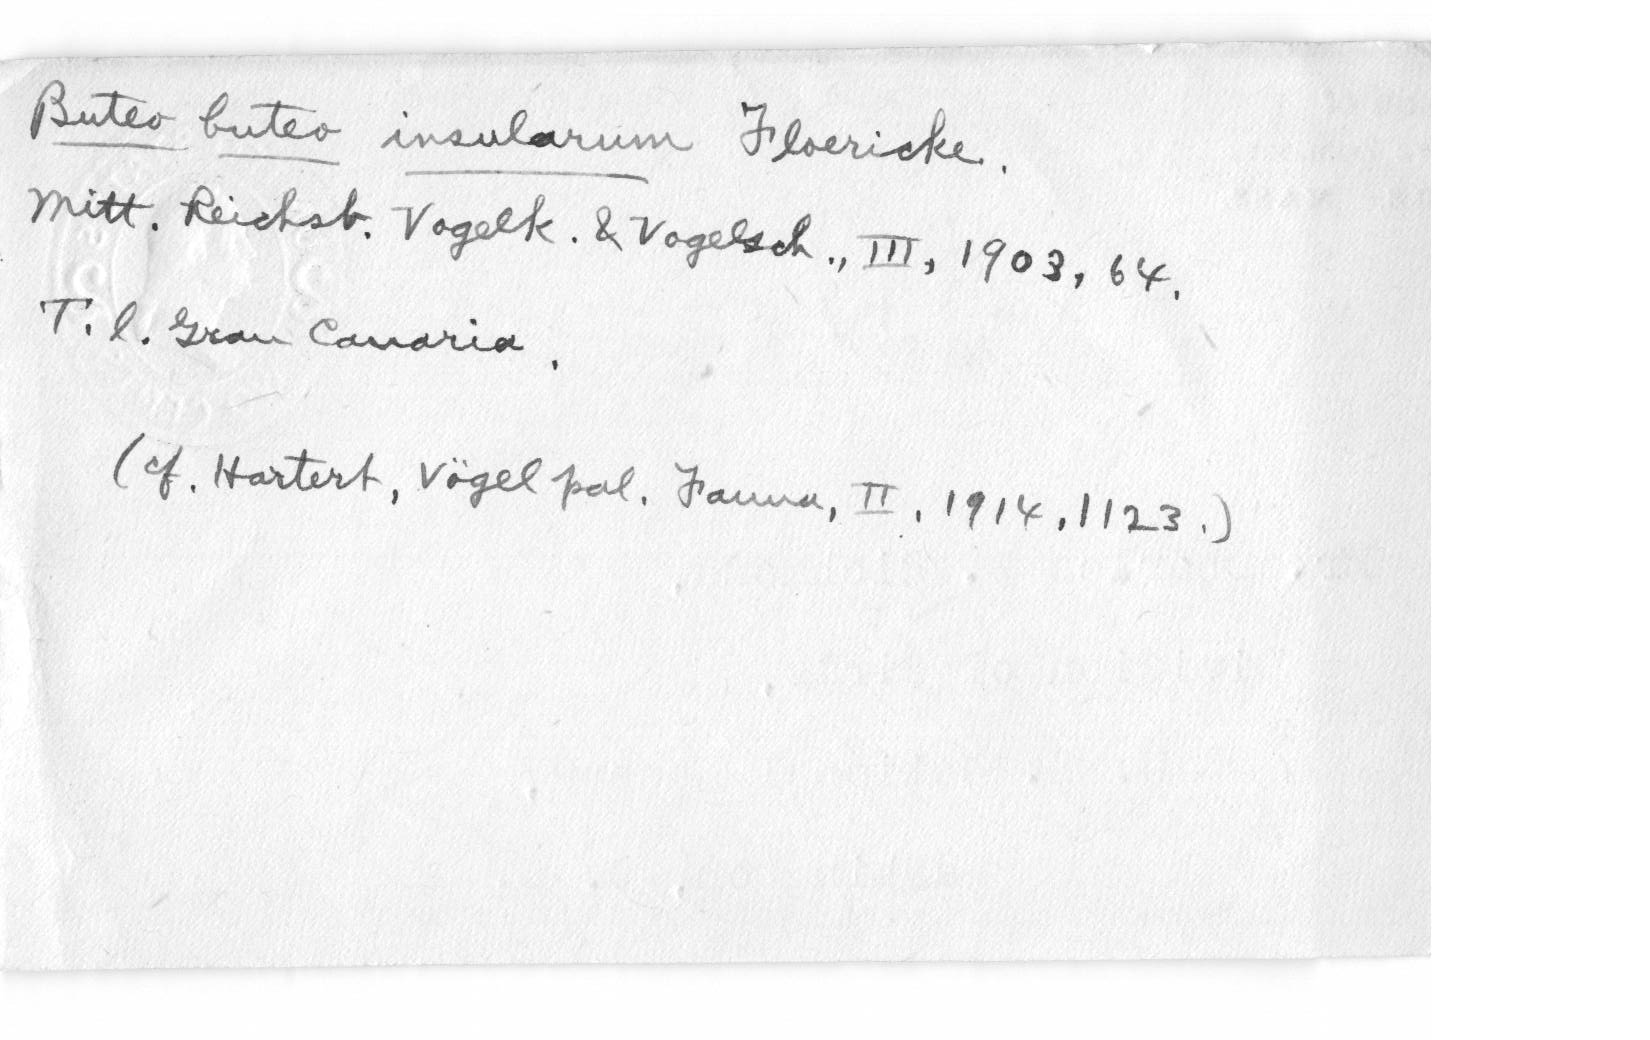 Buteo buteo insularum Floericke.
Mitt. Reichsb. Vogelk. & Vogelsch., III, 1903, 64.
T. l. Gran Canaria.
(cf. Hartert, Vögel pal. Fauna, II, 1914, 1123.)